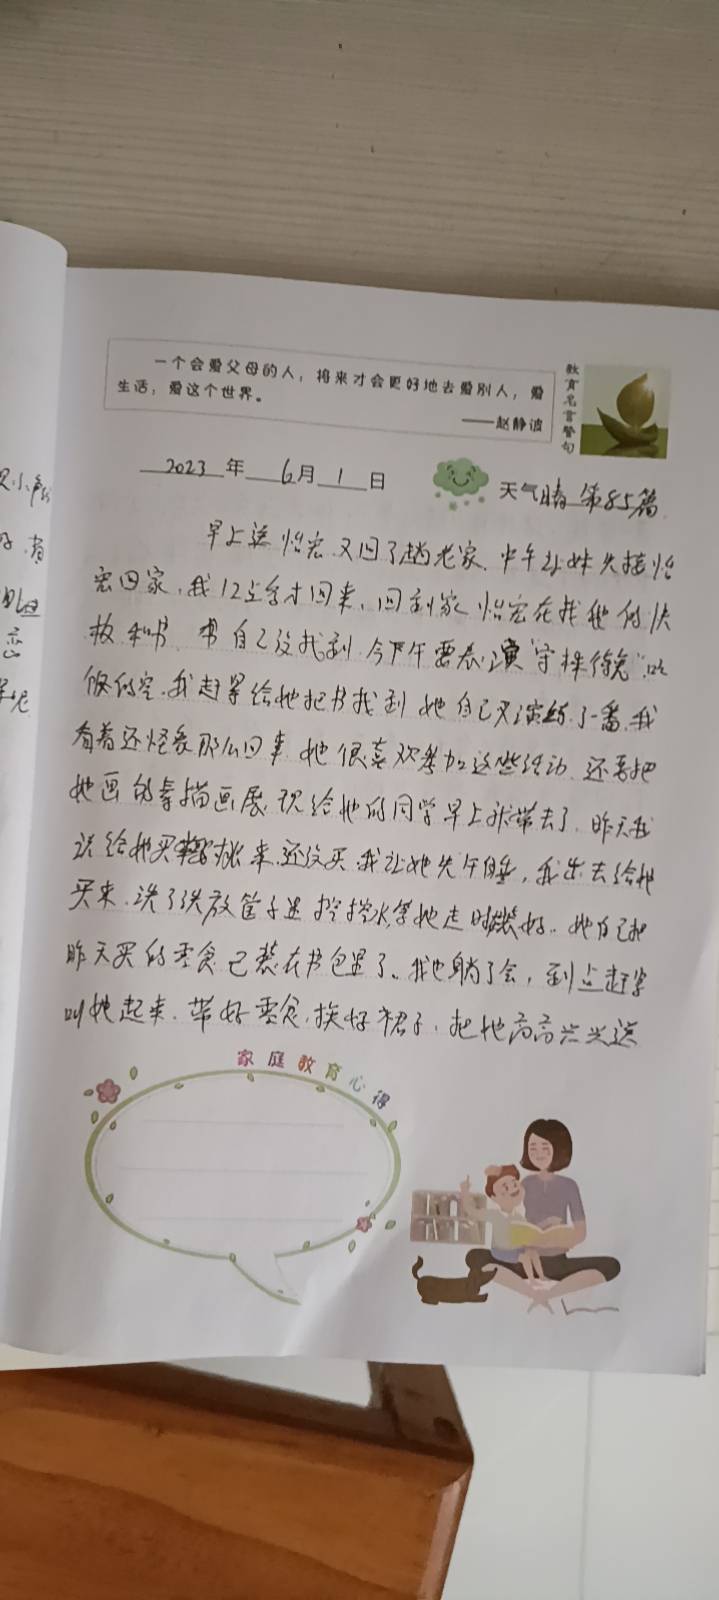 一个会爱父母的人，将来才会更好地去爱别人，爱
生活，爱这个世界。
——赵静波
教育名言警句
2023年6月1日
天气晴 第85篇
早上送怡宏又回了趟老家.中午让妹夫接怡
宏回家,我12点多才回来,回到家怡宏在找他的快
板和书 书自己没找到 今下午要表演"守株待兔"
我赶紧给她把书找到 她自己又演练了一番.我
看着还怪象那么回事.她很喜欢参加这些活动.还要把
她画的素描画展现给她的同学早上就带去了.昨天我
说给她买桃来.还没买.我让她先午睡,我出去给她
买来.洗了洗放筐子里控控水,等她走时装好.她自己把
昨天买的零食已装在书包里了.我也躺了会,到点赶紧
叫她起来.带好零食,换好裙子,把她高高兴兴送
家庭教育心得